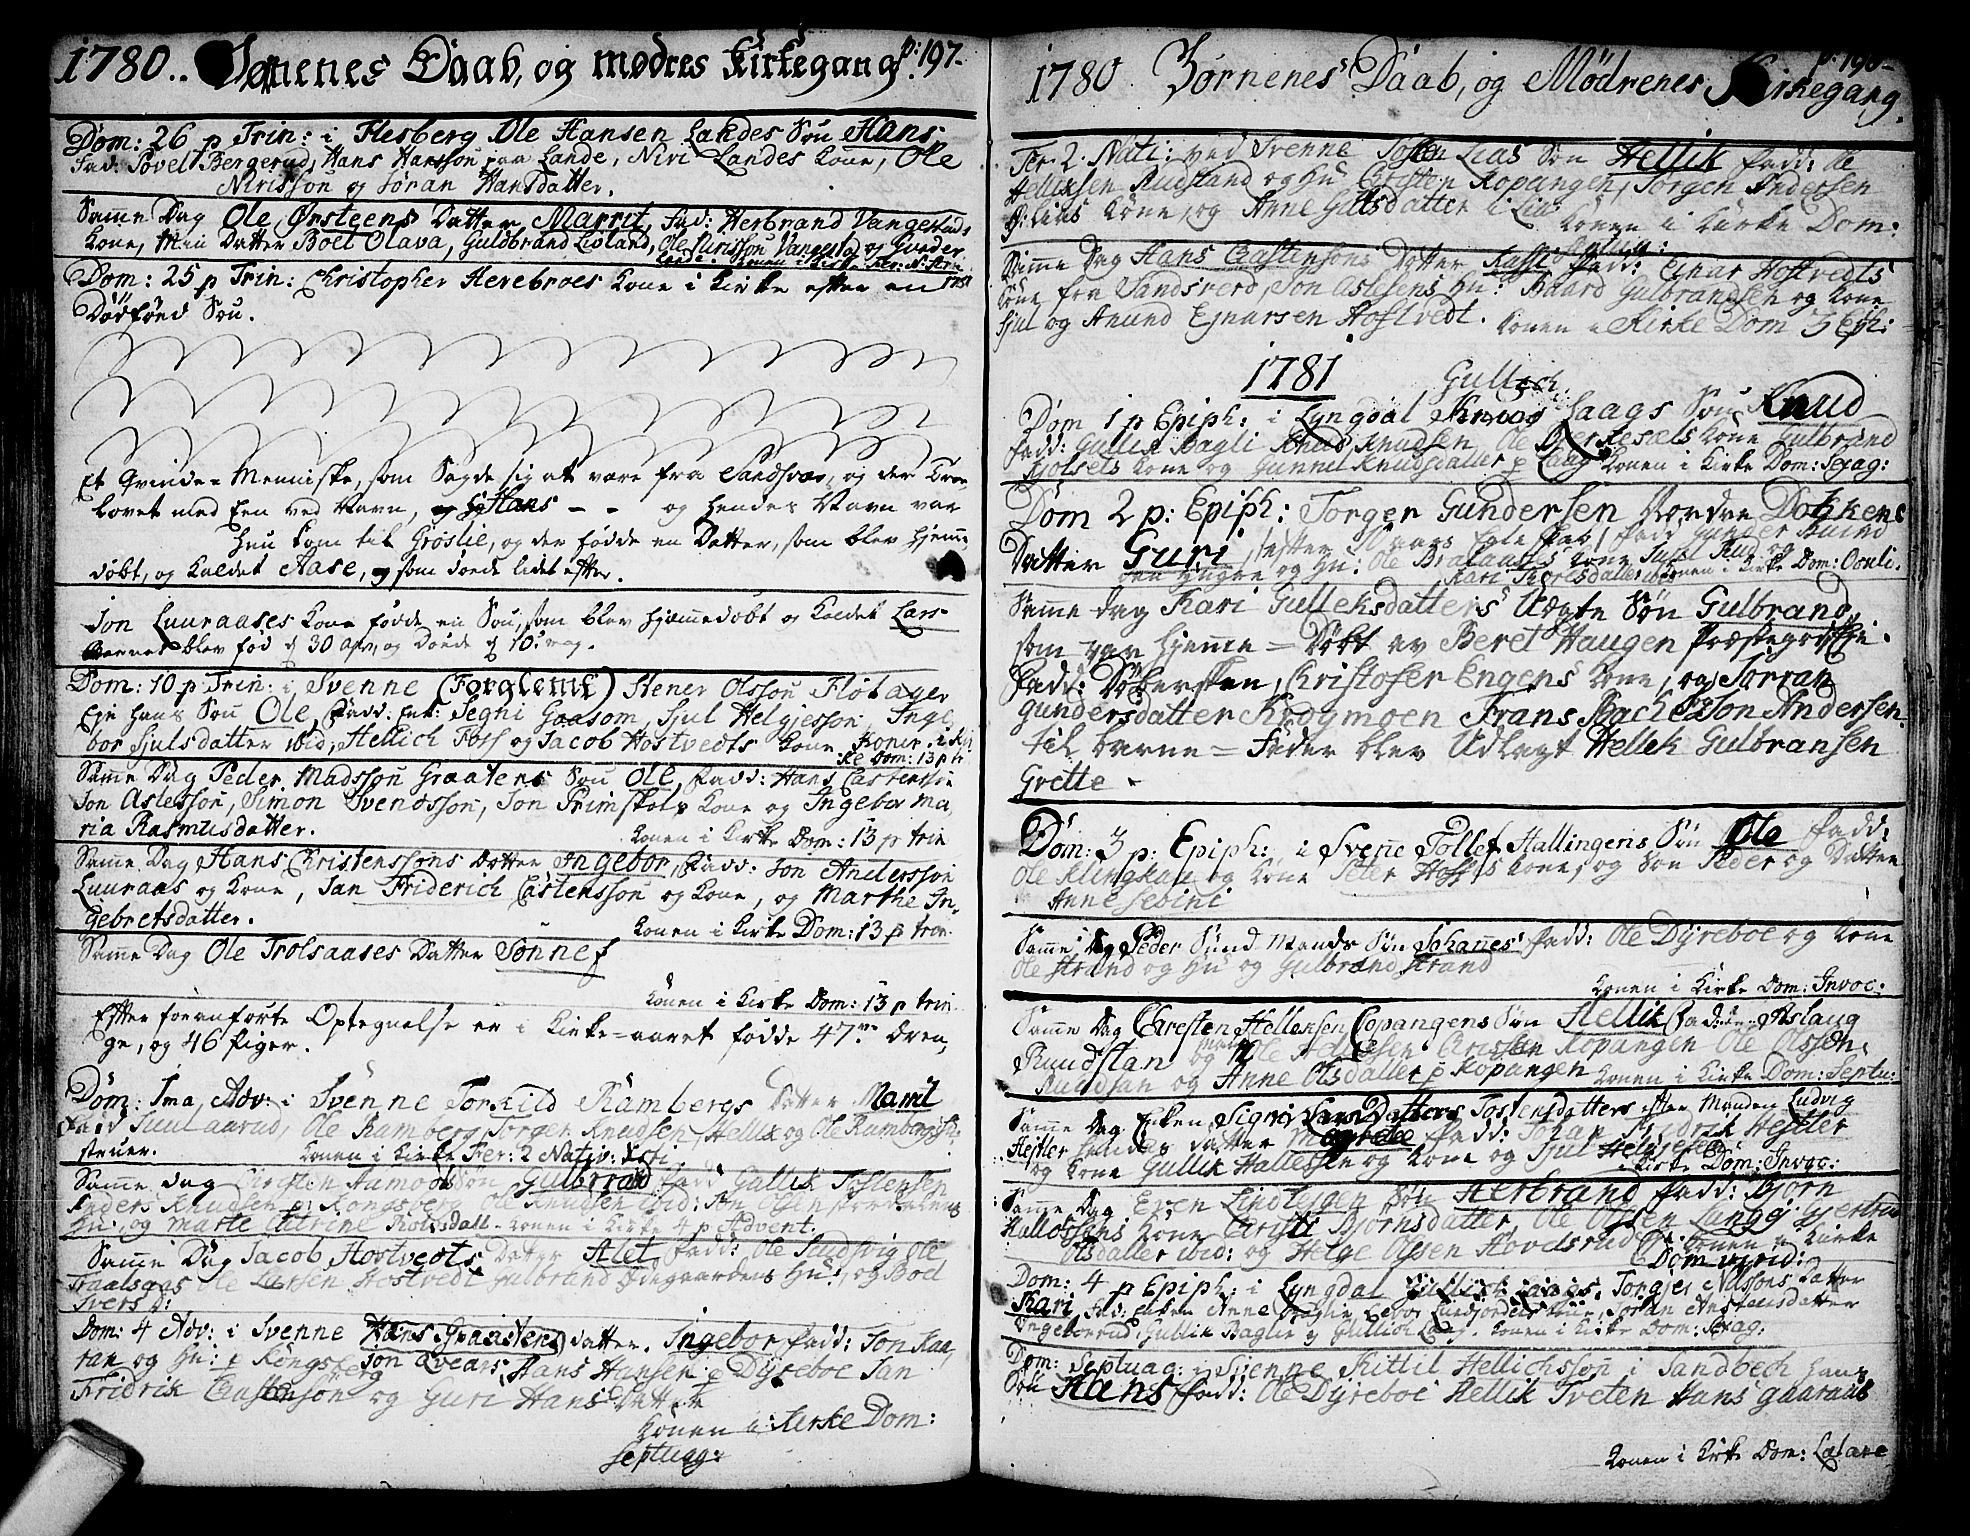 1780.. Børnenes Daab, og mødres Kirkegang p: 197.
Dom: 26 p Trin: i Flesberg Ole Hansen Landes Søn Hans
fad: Povel Bergerud, Hans Hansson paa Lande, Niri Landes Kone, Ole
Nirisson og Jøran Hansdatter.
Samme Dag Ole Ørsteens Datter Marrit, fad: Herbrand Vangestads
Kone, Min Datter Boel Olava, Guldbrand Livland, Ole Nirisson Vangestad og Gunder
Dom: 25 p Trin: Christopher Herebroes Kone i Kirke efter en
Dødføed Søn.
Et Qvinde-Menniske, som Sagde sig at være fra Sandsvær, og der Troe
lovet med Een ved Navn, Hans - - og hendes Navn var
hun kom til Groslie, og der fødde en Datter, som blev hjemme
døbt, og kaldet Aase, og som døede lidet efter.
Jon Luuraases Kone fødde en Søn, som blev hjemmedøbt og kaldet Lars
Barnet blev fød d 30 apr, og Døde d 10 may.
Dom: 10 p Trin: i Svenne (Forglemt) Stener Olsson Flotager
Eje hans Søn Ole, Fadd: Enk: Segni Gaasom, Sjul Helgjesson, Inge
bor Sjulsdatter ibid, Hellich Foss og Jacob Hostvedts Kone. Konen i Kir
ke Dom: 13 p tr
Samme Dag Peder Madsson Graatens Søn Ole, fadd: Hans Castensøn
Jon Aslesson, Simon Svendsson, Jon Primskots Kone og Ingebor Ma
ria Rasmusdatter. Konen i Kirke Dom: 13 p trin
Samme Dag Hans Christenssøns Datter Ingebor, Fadd: Jon Andersson
Luuraas og Kone, Jan Friderich Castensson og Kone, og Marthe In-
gebretsdatter. Konen i Kirke Dom: 13 p trin.
Samme Dag Ole Trolsaases Datter Sønnef
Konen i Kirke Dom: 13 p trin
Efter foranførte Optegnelse er i Kirke-aaret fødde 47 Dren,
ge, og 46 Piger.
Dom: 1ma Adv: i Svenne Torkild Rambergs Datter Marit
fadd Juul aarud, Ole Ramberg, Jørgen Knudsen, Hellik og Ole Ramberg
steuer. Konen i Kirke Fer: 2 Nativ:
Samme dag Kirsten Aamods Søn Gulbrand fadd Gullik Tostensen
Anders Knudsen p Kongsberg Ole Knudsen ibid: Jon Olsen
Hu: og Marte Catrine Rolvsdatt. Konen i Kirke 4 p Advent.
Samme Dag Jacob Hostvedts Dater Alet fadd: Ole Sundsvig Ole
Traalsaas Ole Larsen Hostvedt Gulbrand Ødegaardens Hu:, og Boel
Ivers D:
Dom: 4 Adv: i Svenne Hans Graastens datter. Ingebor fadd: Jon Kaa,
ran og Hu: p Kongsberg Jon Qvears, Hans Hansen p Dyreboe Jan
Fridrik Castensøn og Guri Hans Datter
Konen i Kirke Dom:
Septuag:
1780 Børnenes Daab, og Mødrenes Kirkegang. p: 198
Fer 2. Nati: ved Svenne Lias Søn Hellik fadd: Ole
Hellixsen Rudstand og Hu Cristen Kopangen, Jørgen Andersen
Ø: Lias Kone, og Anne Gulsdatter i Lia: Konen i Kirke Dom:
Samme Dag Hans Castensøns Dotter fadd: Ejnar Hostvedts
Kone fra Sandsverd, Jon Aslesens Hu: Baard Gulbrandsen og Kone
Sjul og Anund Ejnarsen Hostvedt. Konen i Kirke Dom 3 Eph:
1781
Gullich
Dom 1 p Epiph: i Lyngdal Laags Søn Knud
fadd: Gullik Bagli Knud Knudsen Ole Kone Gulbrand
Kone og Gunnil Knudsdatter p Laag Konen i Kirke Dom: Sexag:
Dom 2 p: Epiph: Torger Gundersen Nordre Dokkens
Datter Guri efter fadd Gunder
den yngre og Hu: Ole Bralands Kone Sjul
Kari Torersdatter ibid Konen i Kirke Dom: Oculi.
Samme Dag Kari Gulleksdatters Uægte Søn Gulbrand,
som var hjemme-Døbt av Beret Haugen Præstegr
fadd: Dokkersken, Kristofer Engens Kone, og Jorran
Gundersdatter Frans Bache Jon Andersen.
til barne-Fader blev Udlagt Hellek Gulbransen
Grette.
Dom: 3 p: Epiph: i Svenne Tollef Hallingens Søn Ole fadd:
Ole Klingkau og Kone Peter Hoffs Kone, og Søn Peder og Datter
Anne Sebini
Samme Dag Peder Sund Mands Søn Johannes fadd: Ole Dyreboe og Kone
Ole Strand og Hu og Gulbrand Strand
Konen i Kirke Dom: Invoc:
Samme Dag Chresten Hellensen Copangens Søn Hellik fad: Aslaug
Ruudstan og Cristen Kopangen Ole Olssen
Ruudstan og Anne Olsdatter p Kopangen Konen i Kirke Dom: Septu:
Samme Dag Enken Sigri Tostensdatters efter Manden Ludvig
Hestler hendes datter fadd: Johan Fridrik Hestler
og Kone Gullik Hallessen og Kone og Sjul Helgjesen
i Kirke Dom: Invoc:
Samme Dag Even Lindtegen Søn Herbrand fadd: Bjørn
Hallossens Kone Cirsti Bjørnsdatter, Ole Olssen Lange Gjertrud
Olsdatter ibid: og Helge Olssen Hovdsrud Konen i Kirke
Dom
Dom: 4 p Epiph: i Lyngdal Torgjer Nilssons Datter
Kari fad: Enken Anne
Ingeborrud, Gullik Baglie og Gullich Laag. Konen i Kirke Dom: Sexag:
Dom: Septuag: i Svenne Kittil Hellichsson i Sandbech hans
Søn Hans fadd: Ole Dyreboe Hellik Tveten Hans gaaraas
Konen i Kirke Dom: Lætare